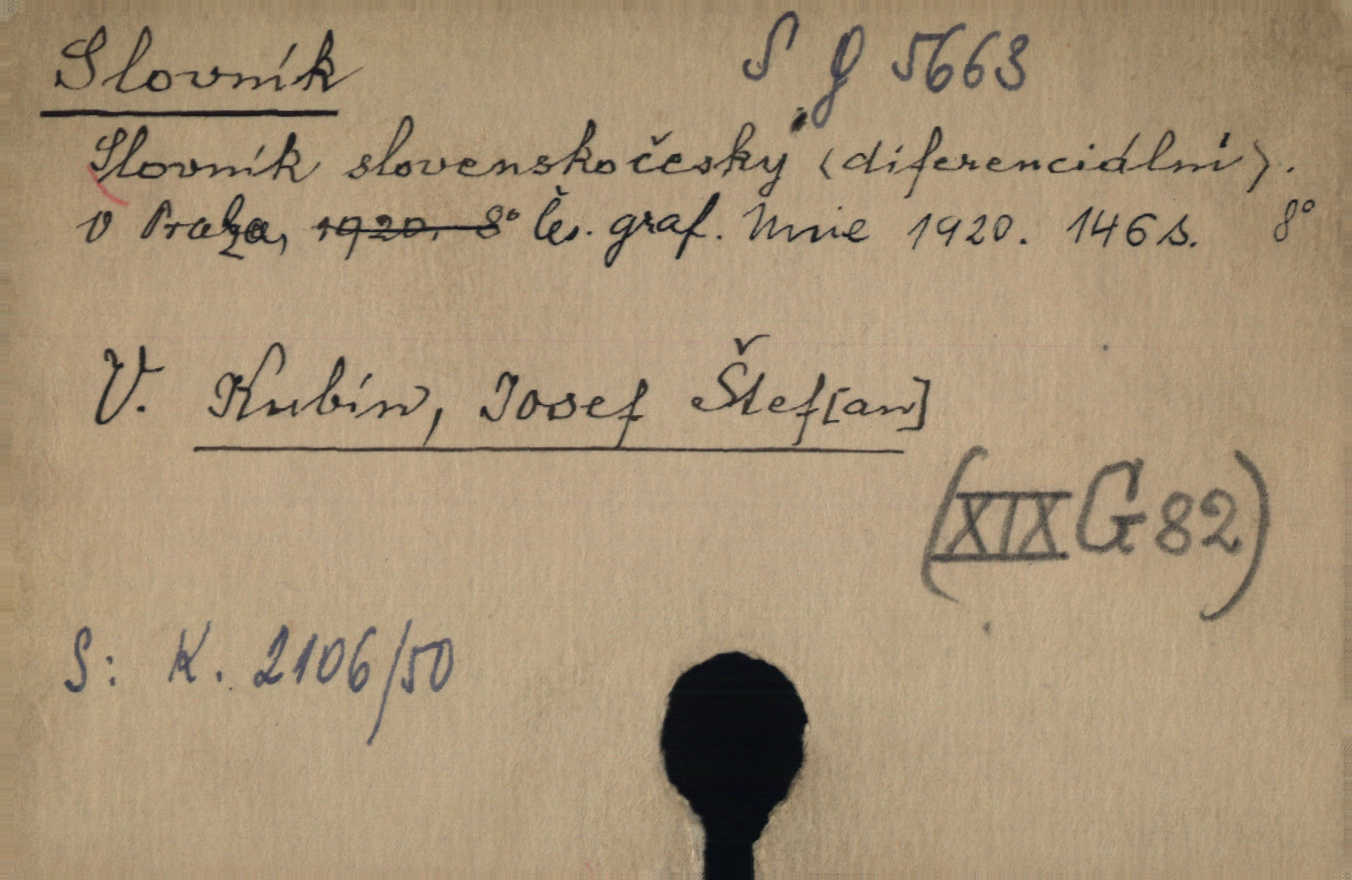 Slovník S g 5663
Slovník slovenskočeský (diferenciální).
v Praze, 1920. 8° Čes. graf. Unie 1920. 146 s. 8°
V. Kubín, Josef Štef[an]
(XIX G 82)
S: K. 2106/50